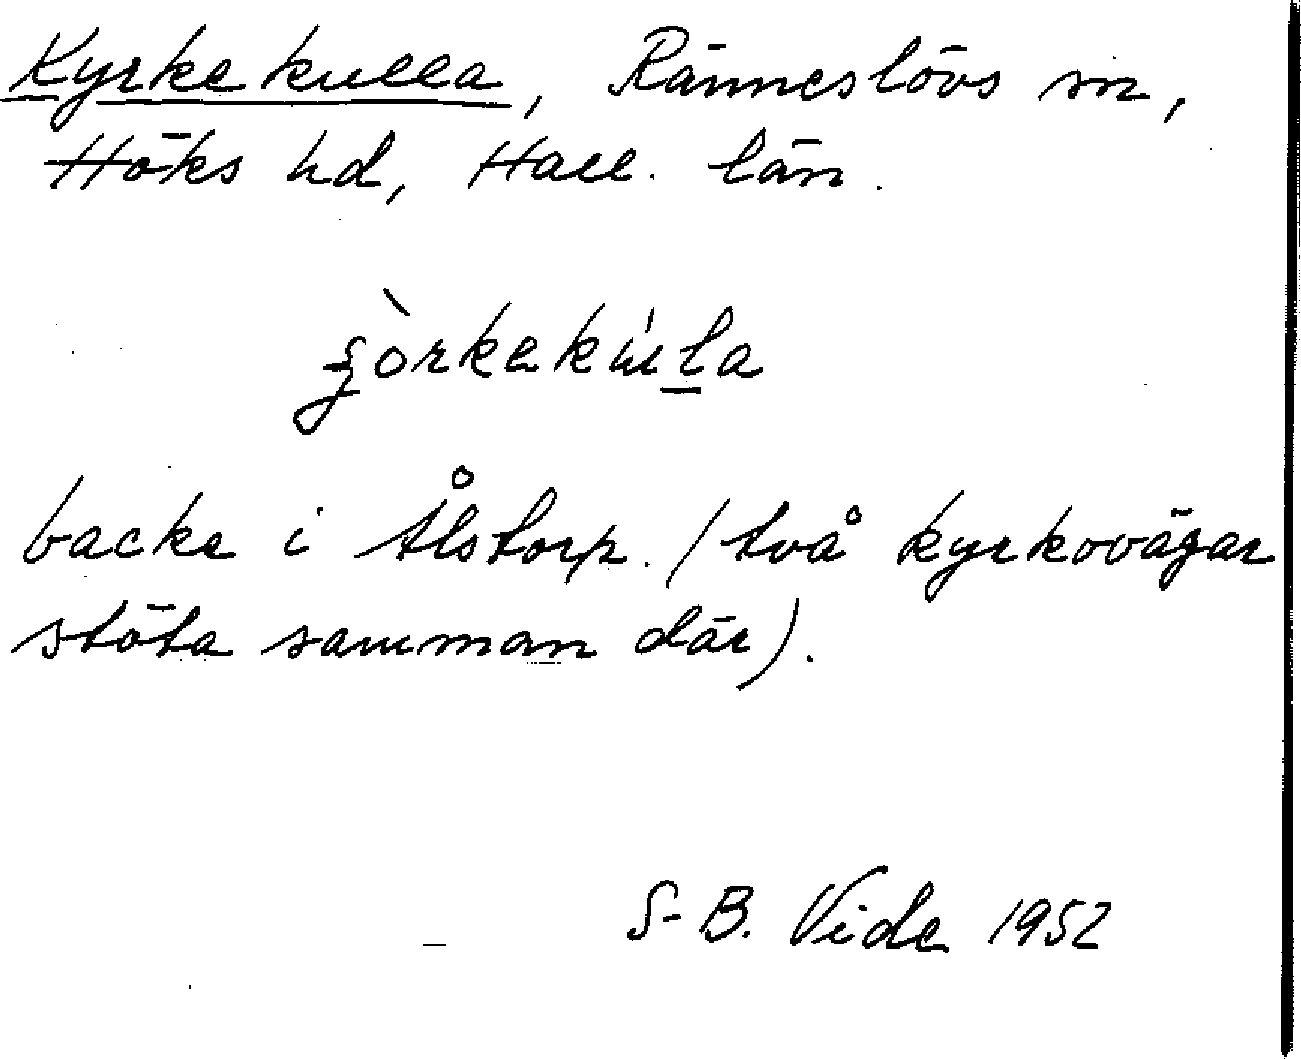 Kyrkekulla, Ränneslövs sn,
Höks hd, Hall. län.
backe i Ålstorp. (två kyrkovägar
stöta samman där).
S-B. Vide 1952